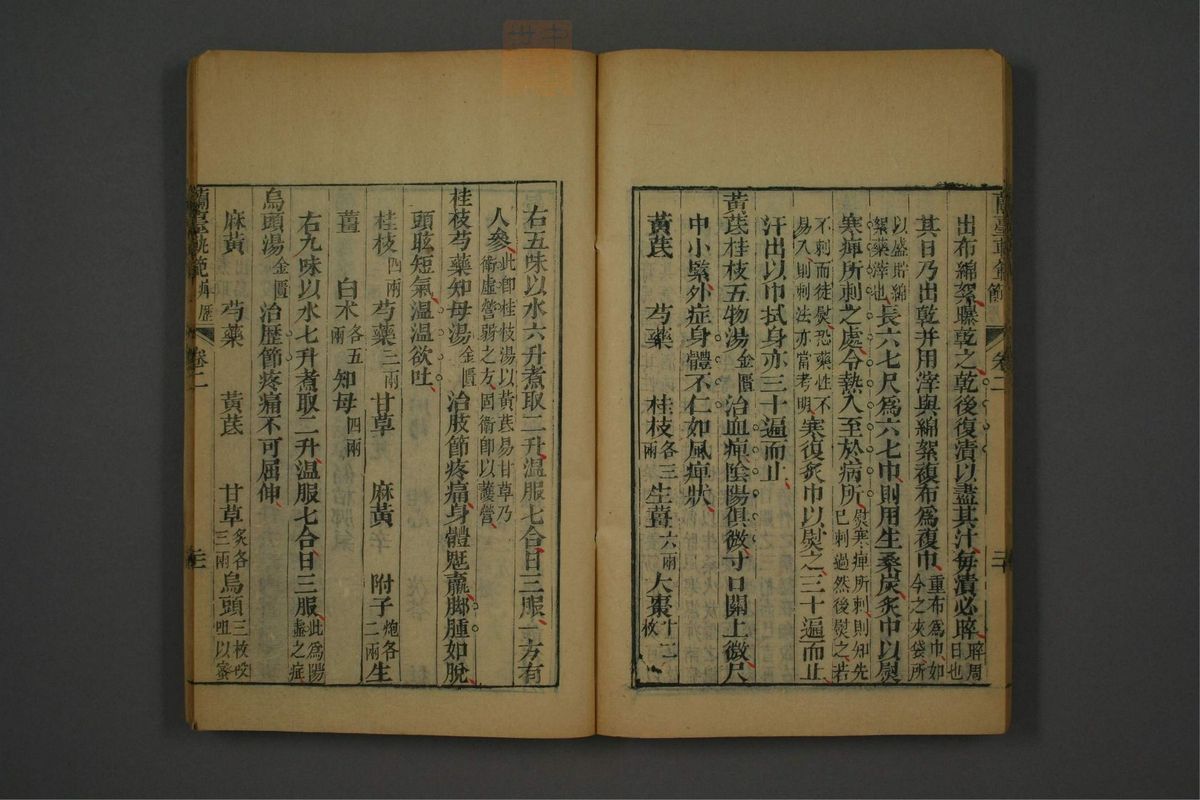 出布綿絮曝乾之乾後復漬以盡其汁每漬必晬晬周日也
其日乃出乾并用滓與綿絮複布爲複巾重布爲巾如今之夾袋所
以盛貯綿絮藥滓也長六七尺爲六七巾則用生桑炭炙巾以熨
寒痺所刺之處令熱入至於病所熨寒痺所刺則知先已刺過然後熨之若
不刺而徒熨恐藥性不易入則刺法亦當考明寒復炙巾以熨之三十遍而止
汗出以巾拭身亦三十遍而止
黃芪桂枝五物湯金匱治血痺陰陽俱微寸口關上微尺
中小緊外症身體不仁如風痺狀
黃芪 芍藥 桂枝各三兩生薑六兩大棗十二枚
卷二
右五味以水六升煮取二升温服七合日三服一方有
人參此卽桂枝湯以黃芪易甘草乃衛虛營弱之方固衛卽以護營
桂枝芍藥知母湯金匱治肢節疼痛身體尪羸脚腫如脫
頭眩短氣温温欲吐
桂枝四兩芍藥三兩甘草 麻黃 附子炮各二兩生
薑 白朮各五兩知母四兩
右九味以水七升煮取二升温服七合日三服此爲陽虛之症
烏頭湯金匱治歷節疼痛不可屈伸
麻黃 芍藥 黃芪 甘草炙各三兩烏頭三枚㕮咀以蜜
蘭臺軌範 卷二